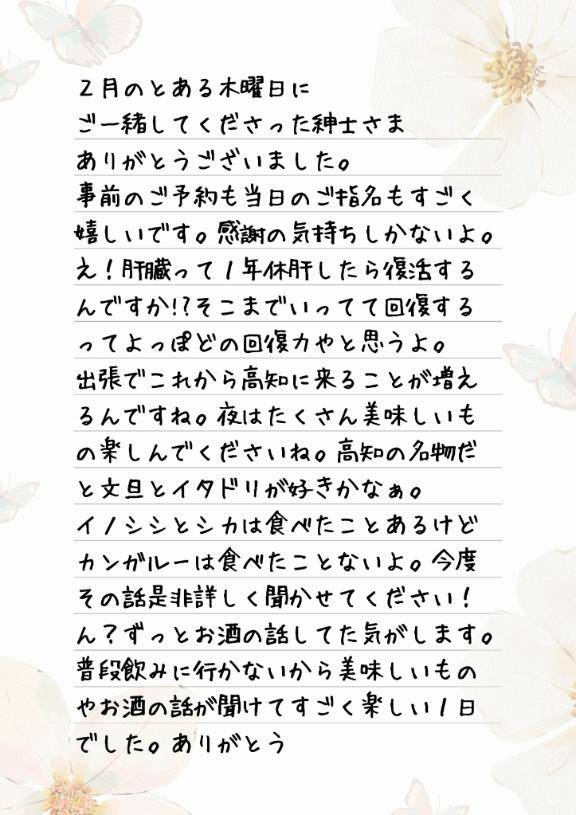 2月のとある木曜日に
ご一緒してくださった紳士さま
ありがとうございました。
事前のご予約も当日のご指名もすごく
嬉しいです。感謝の気持ちしかないよ。
え!肝臓って1年休肝したら復活する
んですか!?そこまでいってて回復する
ってよっぽどの回復力やと思うよ。
出張でこれから高知に来ることが増え
るんですね。夜はたくさん美味しいも
の楽しんでくださいね。高知の名物だ
と文旦とイタドリが好きかなぁ。
イノシシとシカは食べたことあるけど
カンガルーは食べたことないよ。今度
その話是非詳しく聞かせてください!
ん?ずっとお酒の話してた気がします。
普段飲みに行かないから美味しいもの
やお酒の話が聞けてすごく楽しい1日
でした。ありがとう